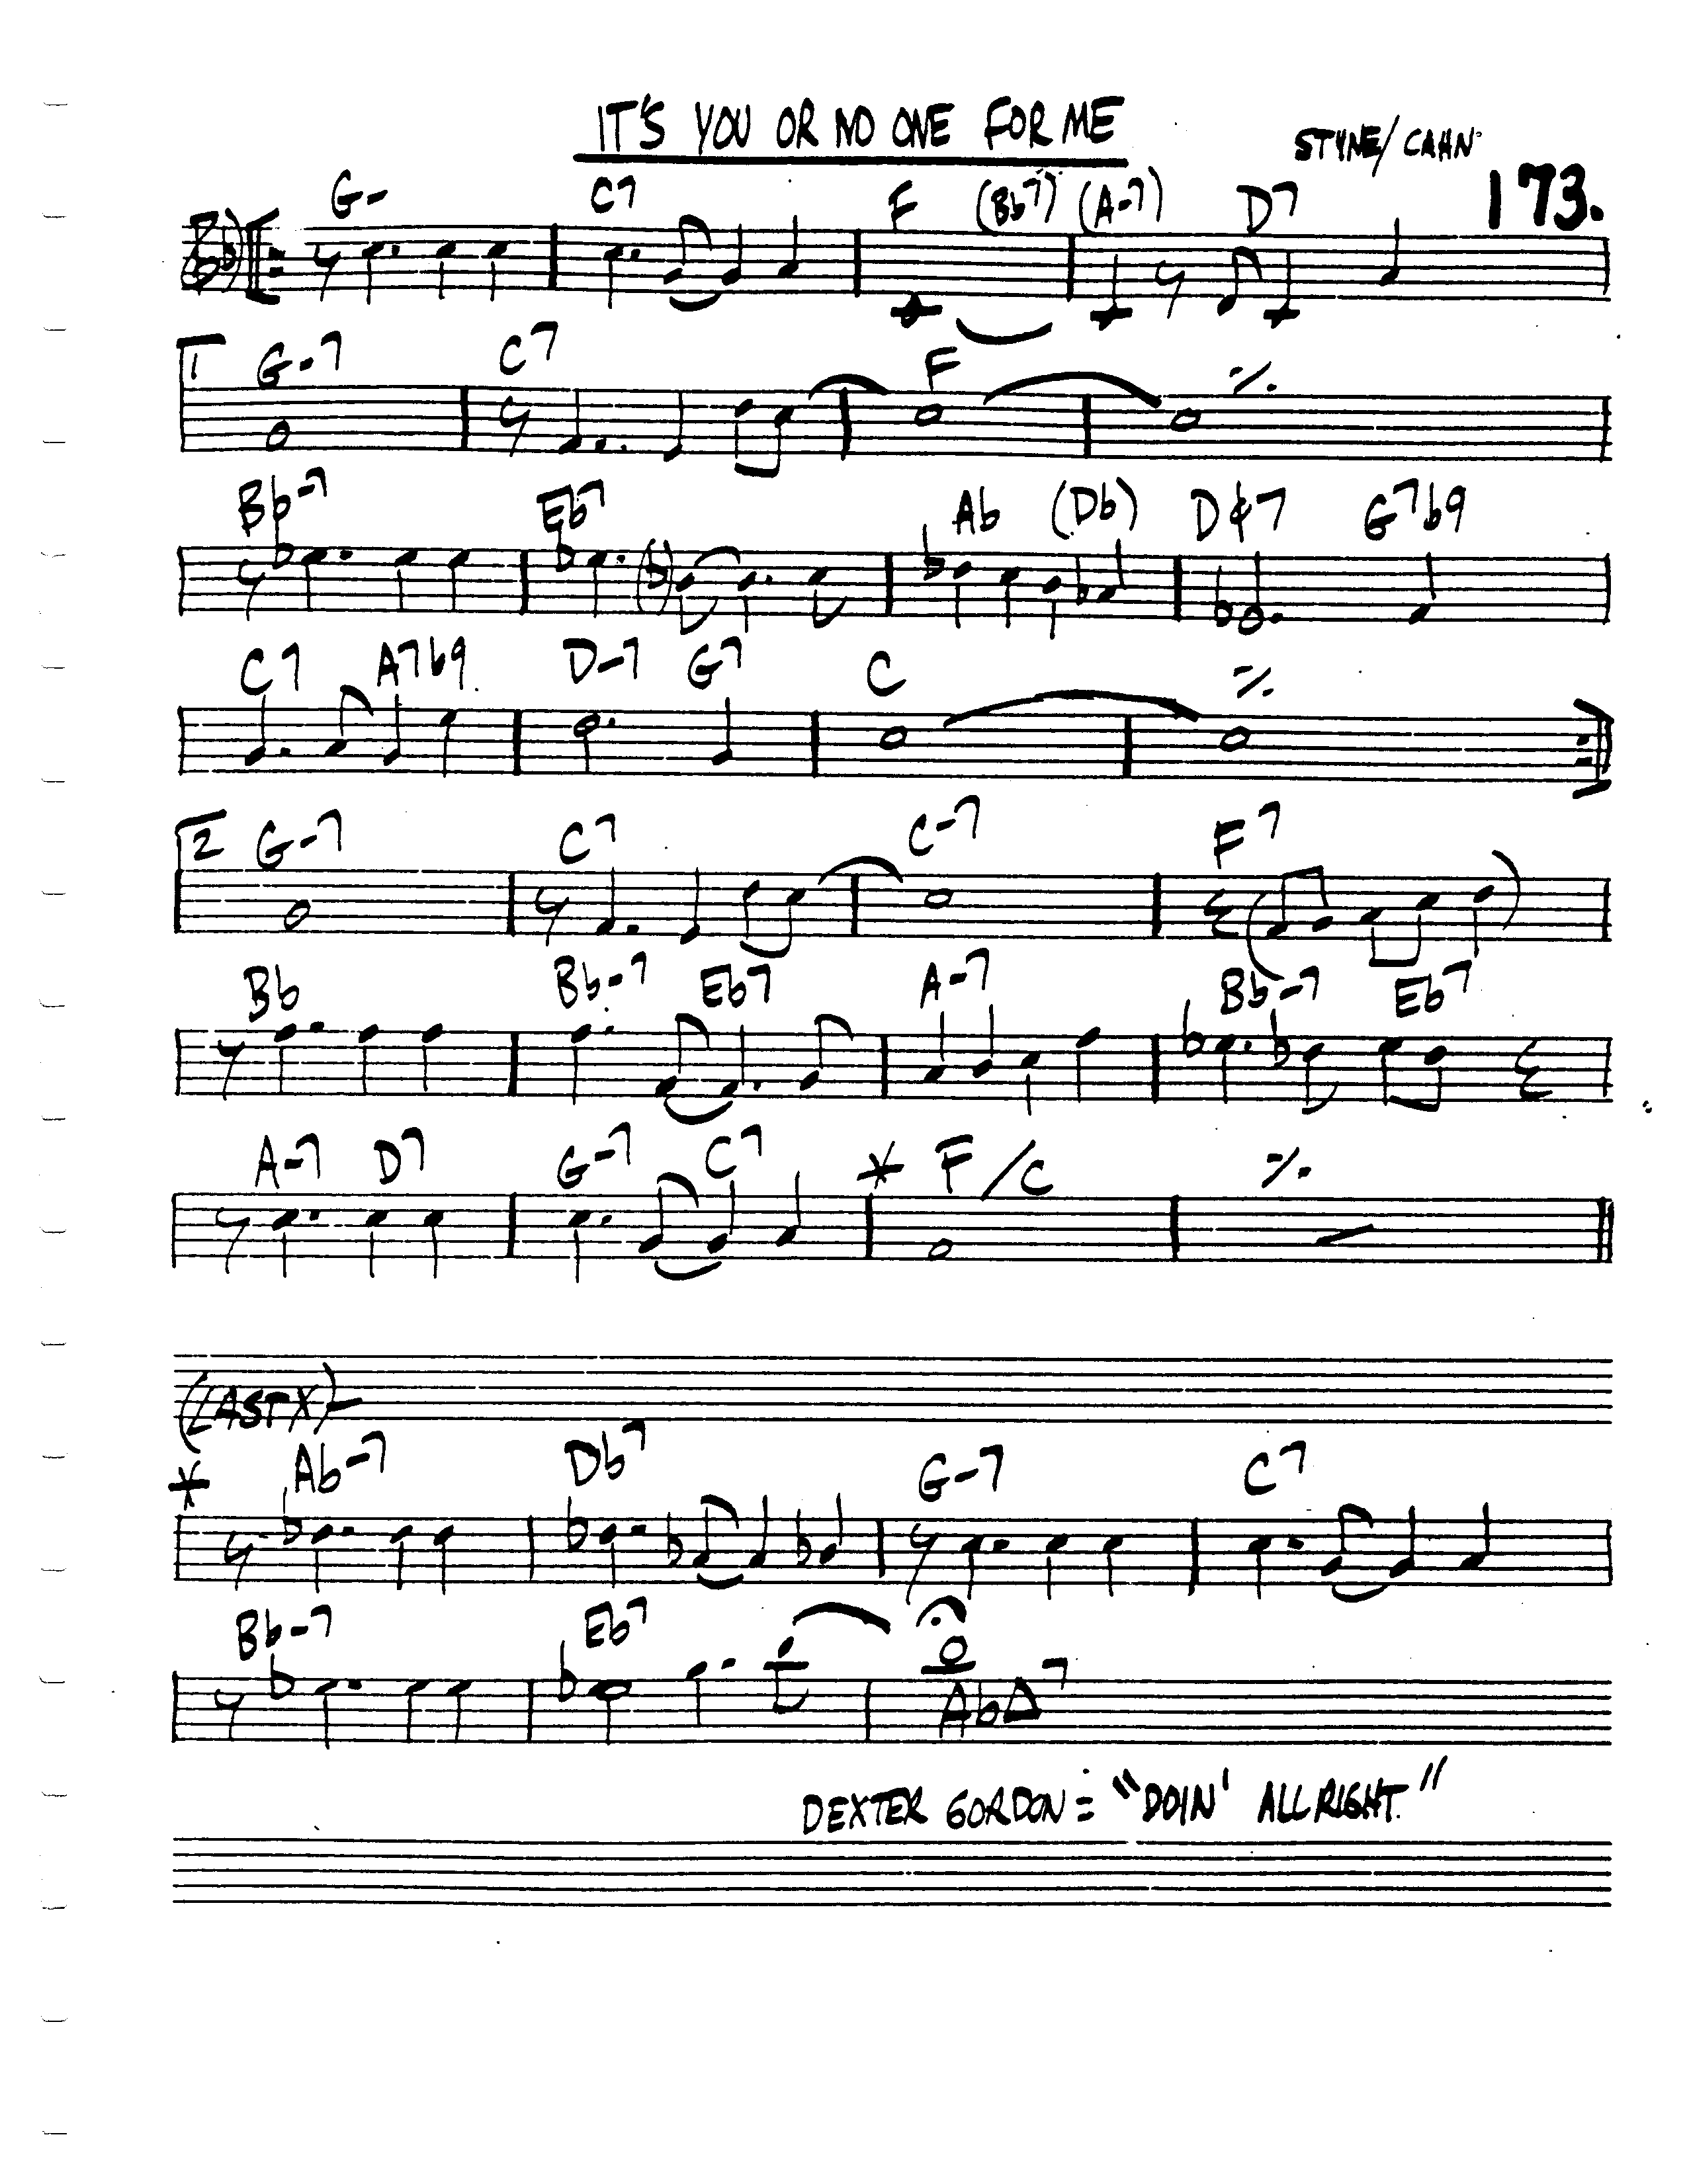 IT'S YOU OR NO ONE FOR ME
STYNE/CAHN
173.
G- C7 F (Bb7) (A-7) D7
1 G-7 C7 F ٪
Bb-7 Eb7 Ab (Db) Dø7 G7b9
C7 A7b9 D-7 G7 C ٪
2 G-7 C7 C-7 F7
Bb Bb-7 Eb7 A-7 Bb-7 Eb7
A-7 D7 G-7 C7 * F/C ٪
(LAST X)
* Ab-7 Db7 G-7 C7
Bb-7 Eb7
AbΔ7
DEXTER GORDON: "DOIN' ALLRIGHT."